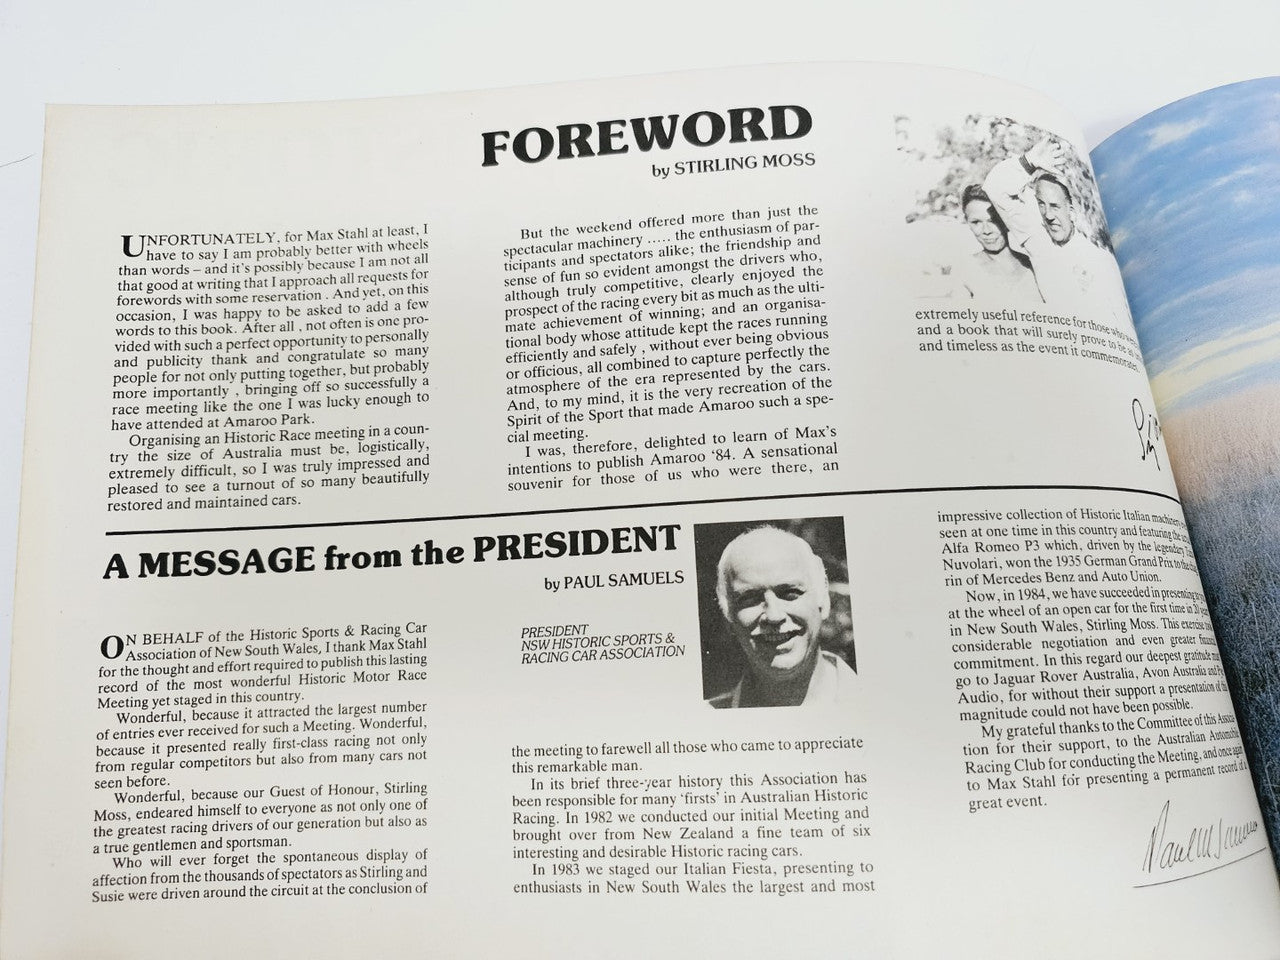 FOREWORD
by STIRLING MOSS
UNFORTUNATELY, for Max Stahl at least, I
have to say I am probably better with wheels
than words – and it's possibly because I am not all
that good at writing that I approach all requests for
forewords with some reservation . And yet, on this
occasion, I was happy to be asked to add a few
words to this book. After all , not often is one pro-
vided with such a perfect opportunity to personally
and publicity thank and congratulate so many
people for not only putting together, but probably
more importantly , bringing off so successfully a
race meeting like the one I was lucky enough to
have attended at Amaroo Park.
Organising an Historic Race meeting in a coun-
try the size of Australia must be, logistically,
extremely difficult, so I was truly impressed and
pleased to see a turnout of so many beautifully
restored and maintained cars.
But the weekend offered more than just the
spectacular machinery ..... the enthusiasm of par-
ticipants and spectators alike; the friendship and
sense of fun so evident amongst the drivers who,
although truly competitive, clearly enjoyed the
prospect of the racing every bit as much as the ulti-
mate achievement of winning; and an organisa-
tional body whose attitude kept the races running
efficiently and safely , without ever being obvious
or officious, all combined to capture perfectly the
atmosphere of the era represented by the cars.
And, to my mind, it is the very recreation of the
Spirit of the Sport that made Amaroo such a spe-
cial meeting.
I was, therefore, delighted to learn of Max's
intentions to publish Amaroo '84. A sensational
souvenir for those of us who were there, an
extremely useful reference for those who
and a book that will surely prove to be as
and timeless as the event it commemorates.
A MESSAGE from the PRESIDENT
by PAUL SAMUELS
PRESIDENT
NSW HISTORIC SPORTS &
RACING CAR ASSOCIATION
ON BEHALF of the Historic Sports & Racing Car
Association of New South Wales, I thank Max Stahl
for the thought and effort required to publish this lasting
record of the most wonderful Historic Motor Race
Meeting yet staged in this country.
Wonderful, because it attracted the largest number
of entries ever received for such a Meeting. Wonderful,
because it presented really first-class racing not only
from regular competitors but also from many cars not
seen before.
Wonderful, because our Guest of Honour, Stirling
Moss, endeared himself to everyone as not only one of
the greatest racing drivers of our generation but also as
a true gentlemen and sportsman.
Who will ever forget the spontaneous display of
affection from the thousands of spectators as Stirling and
Susie were driven around the circuit at the conclusion of
the meeting to farewell all those who came to appreciate
this remarkable man.
In its brief three-year history this Association has
been responsible for many 'firsts' in Australian Historic
Racing. In 1982 we conducted our initial Meeting and
brought over from New Zealand a fine team of six
interesting and desirable Historic racing cars.
In 1983 we staged our Italian Fiesta, presenting to
enthusiasts in New South Wales the largest and most
impressive collection of Historic Italian machinery
seen at one time in this country and featuring the
Alfa Romeo P3 which, driven by the legendary
Nuvolari, won the 1935 German Grand Prix to the
rin of Mercedes Benz and Auto Union.
Now, in 1984, we have succeeded in presenting
at the wheel of an open car for the first time in
in New South Wales, Stirling Moss. This exercise
considerable negotiation and even greater
commitment. In this regard our deepest gratitude
go to Jaguar Rover Australia, Avon Australia and
Audio, for without their support a presentation of
magnitude could not have been possible.
My grateful thanks to the Committee of this
tion for their support, to the Australian Automobile
Racing Club for conducting the Meeting, and once
to Max Stahl for presenting a permanent record
great event.